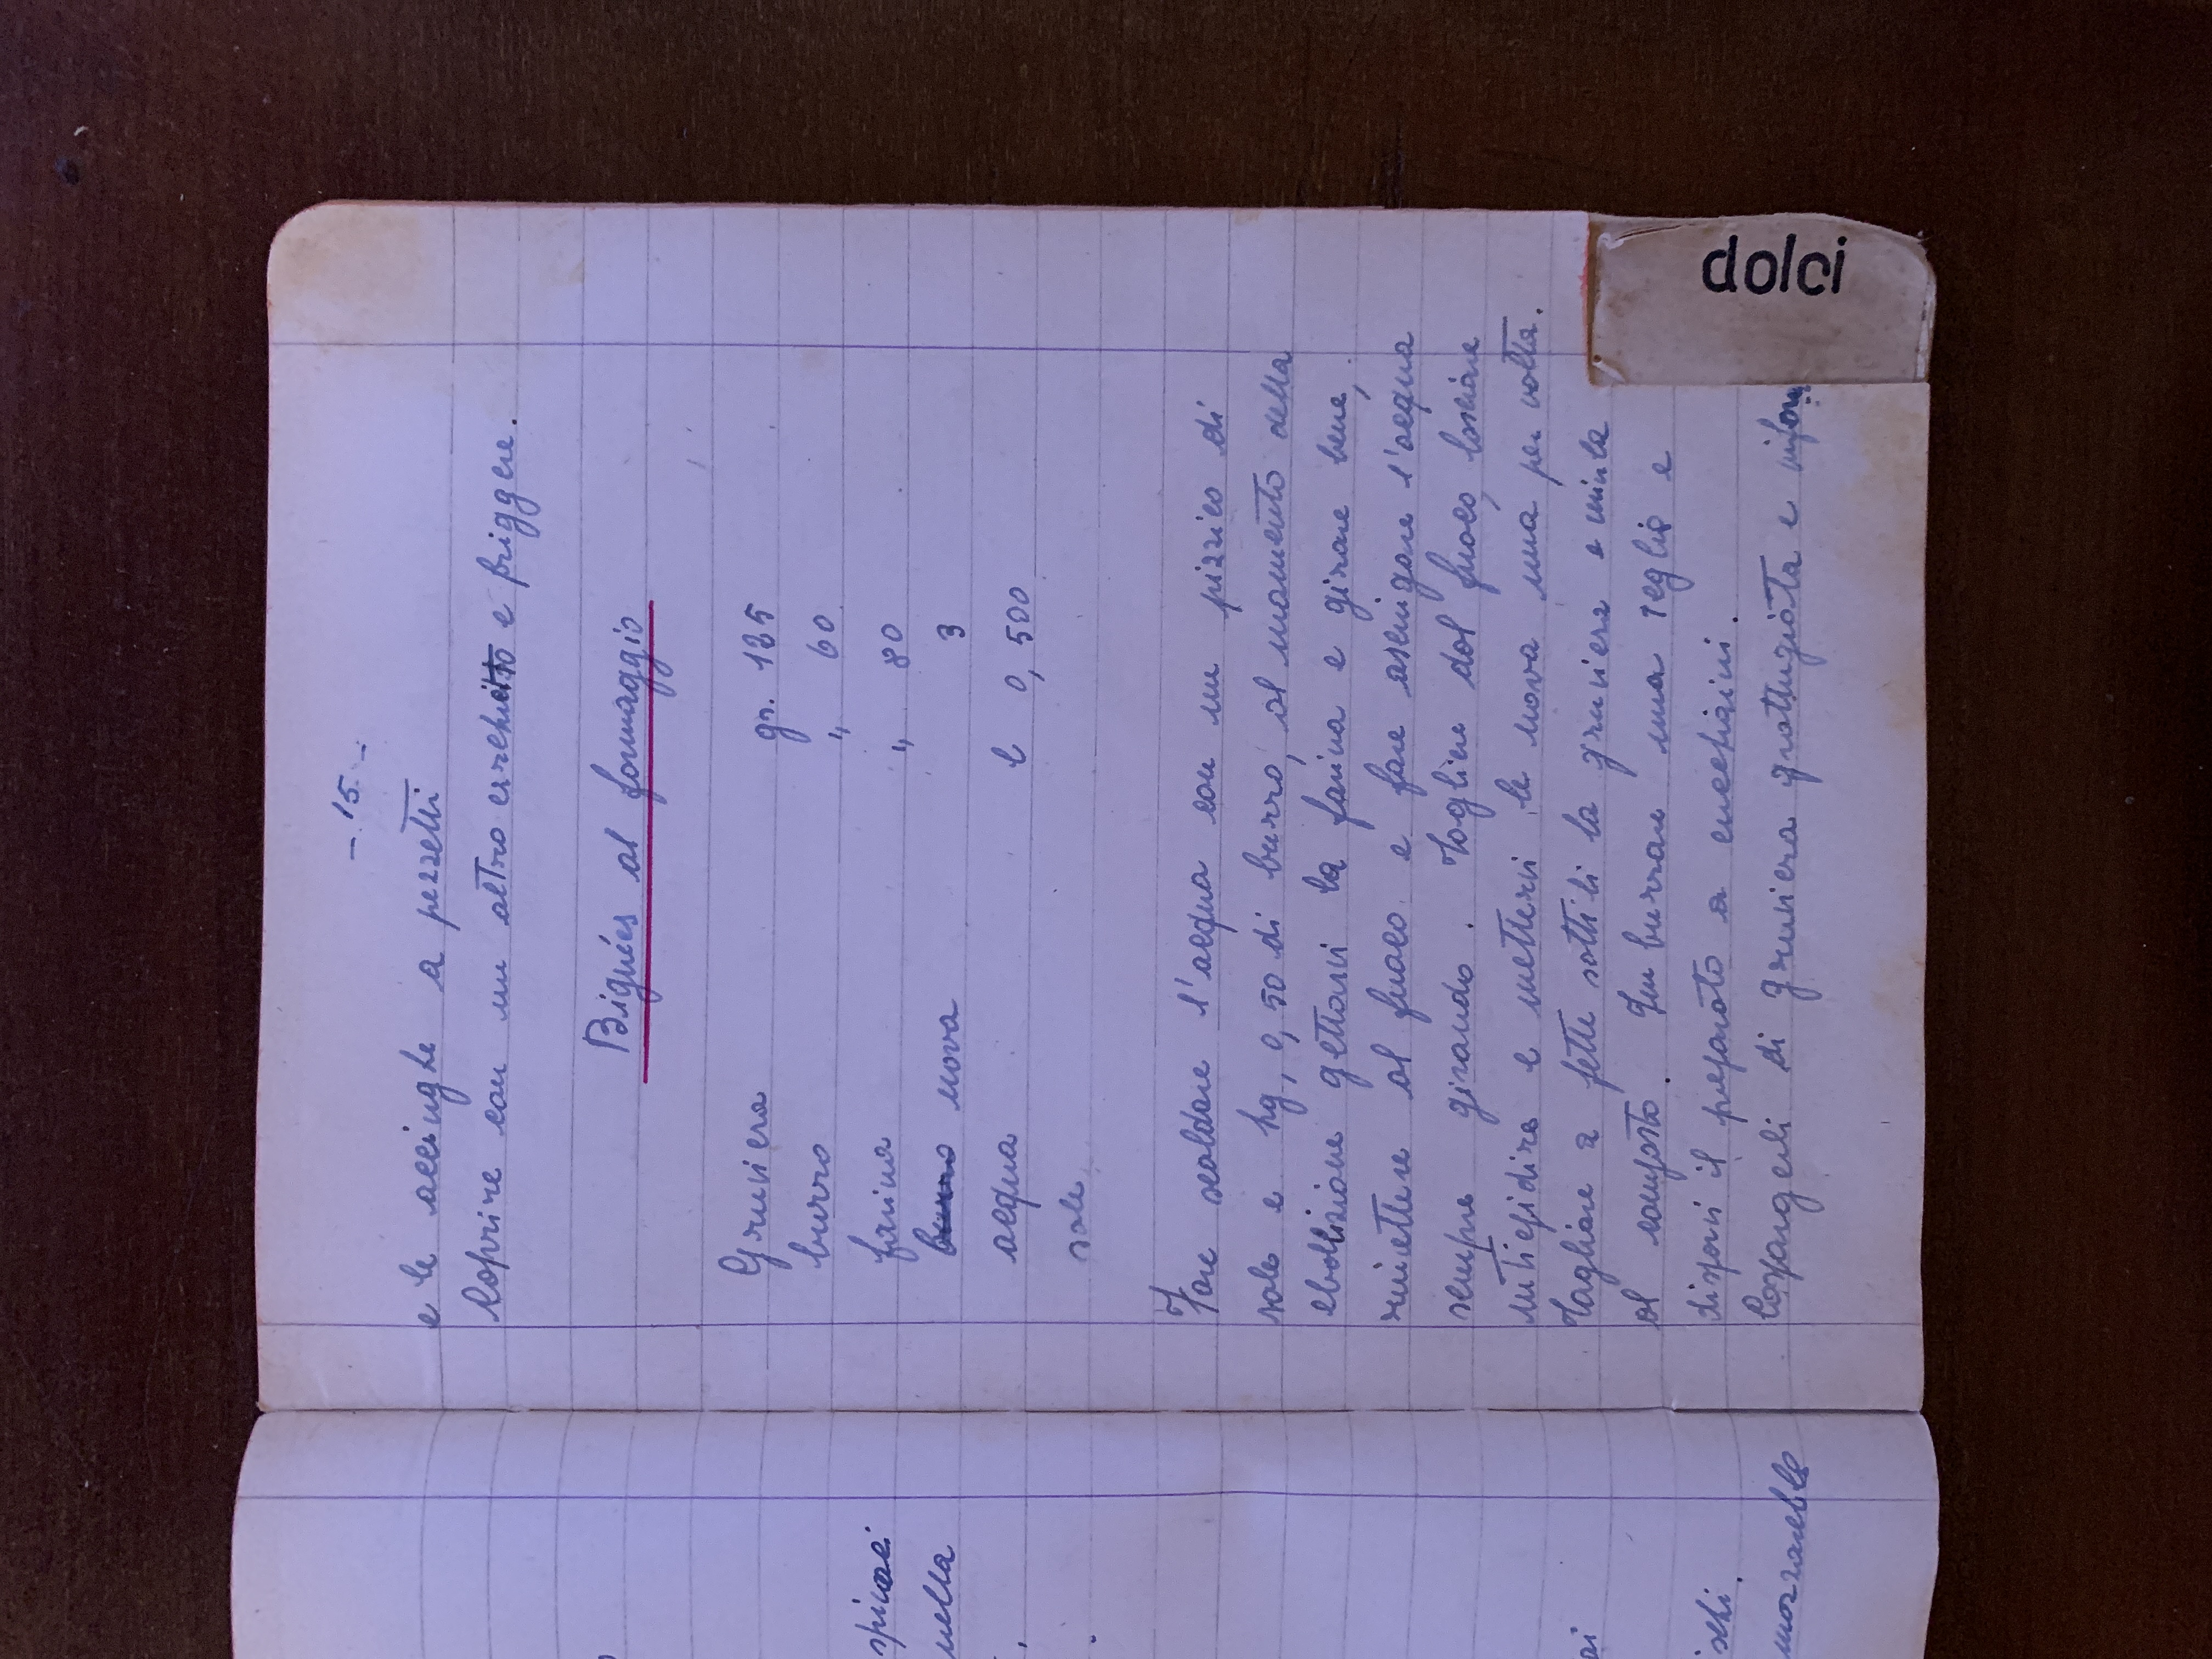 spinaci
nella
ai
ischi.
mozzarelle
- 15. -
e le acciughe a pezzetti
Coprire con un altro cerchietto e friggere.
Bignées al formaggio
Gruviera gr. 125
burro " 60
farina " 80
burro uova 3
acqua l 0,500
sale
Fare scaldare l'acqua con un pizzico di
sale e hg, 0,50 di burro, al momento della
ebollizione gettarvi la farina e girare bene,
rimettere al fuoco e fare asciugare l'acqua
sempre girando. Togliere dal fuoco, lasciare
intiepidire e mettervi le uova una per volta.
Tagliare a fette sottili la gruviera e unirla
al composto. Imburrare una teglia e
disporvi il preparato a cucchiaini.
Cospargerli di gruviera grattugiata e infor
dolci